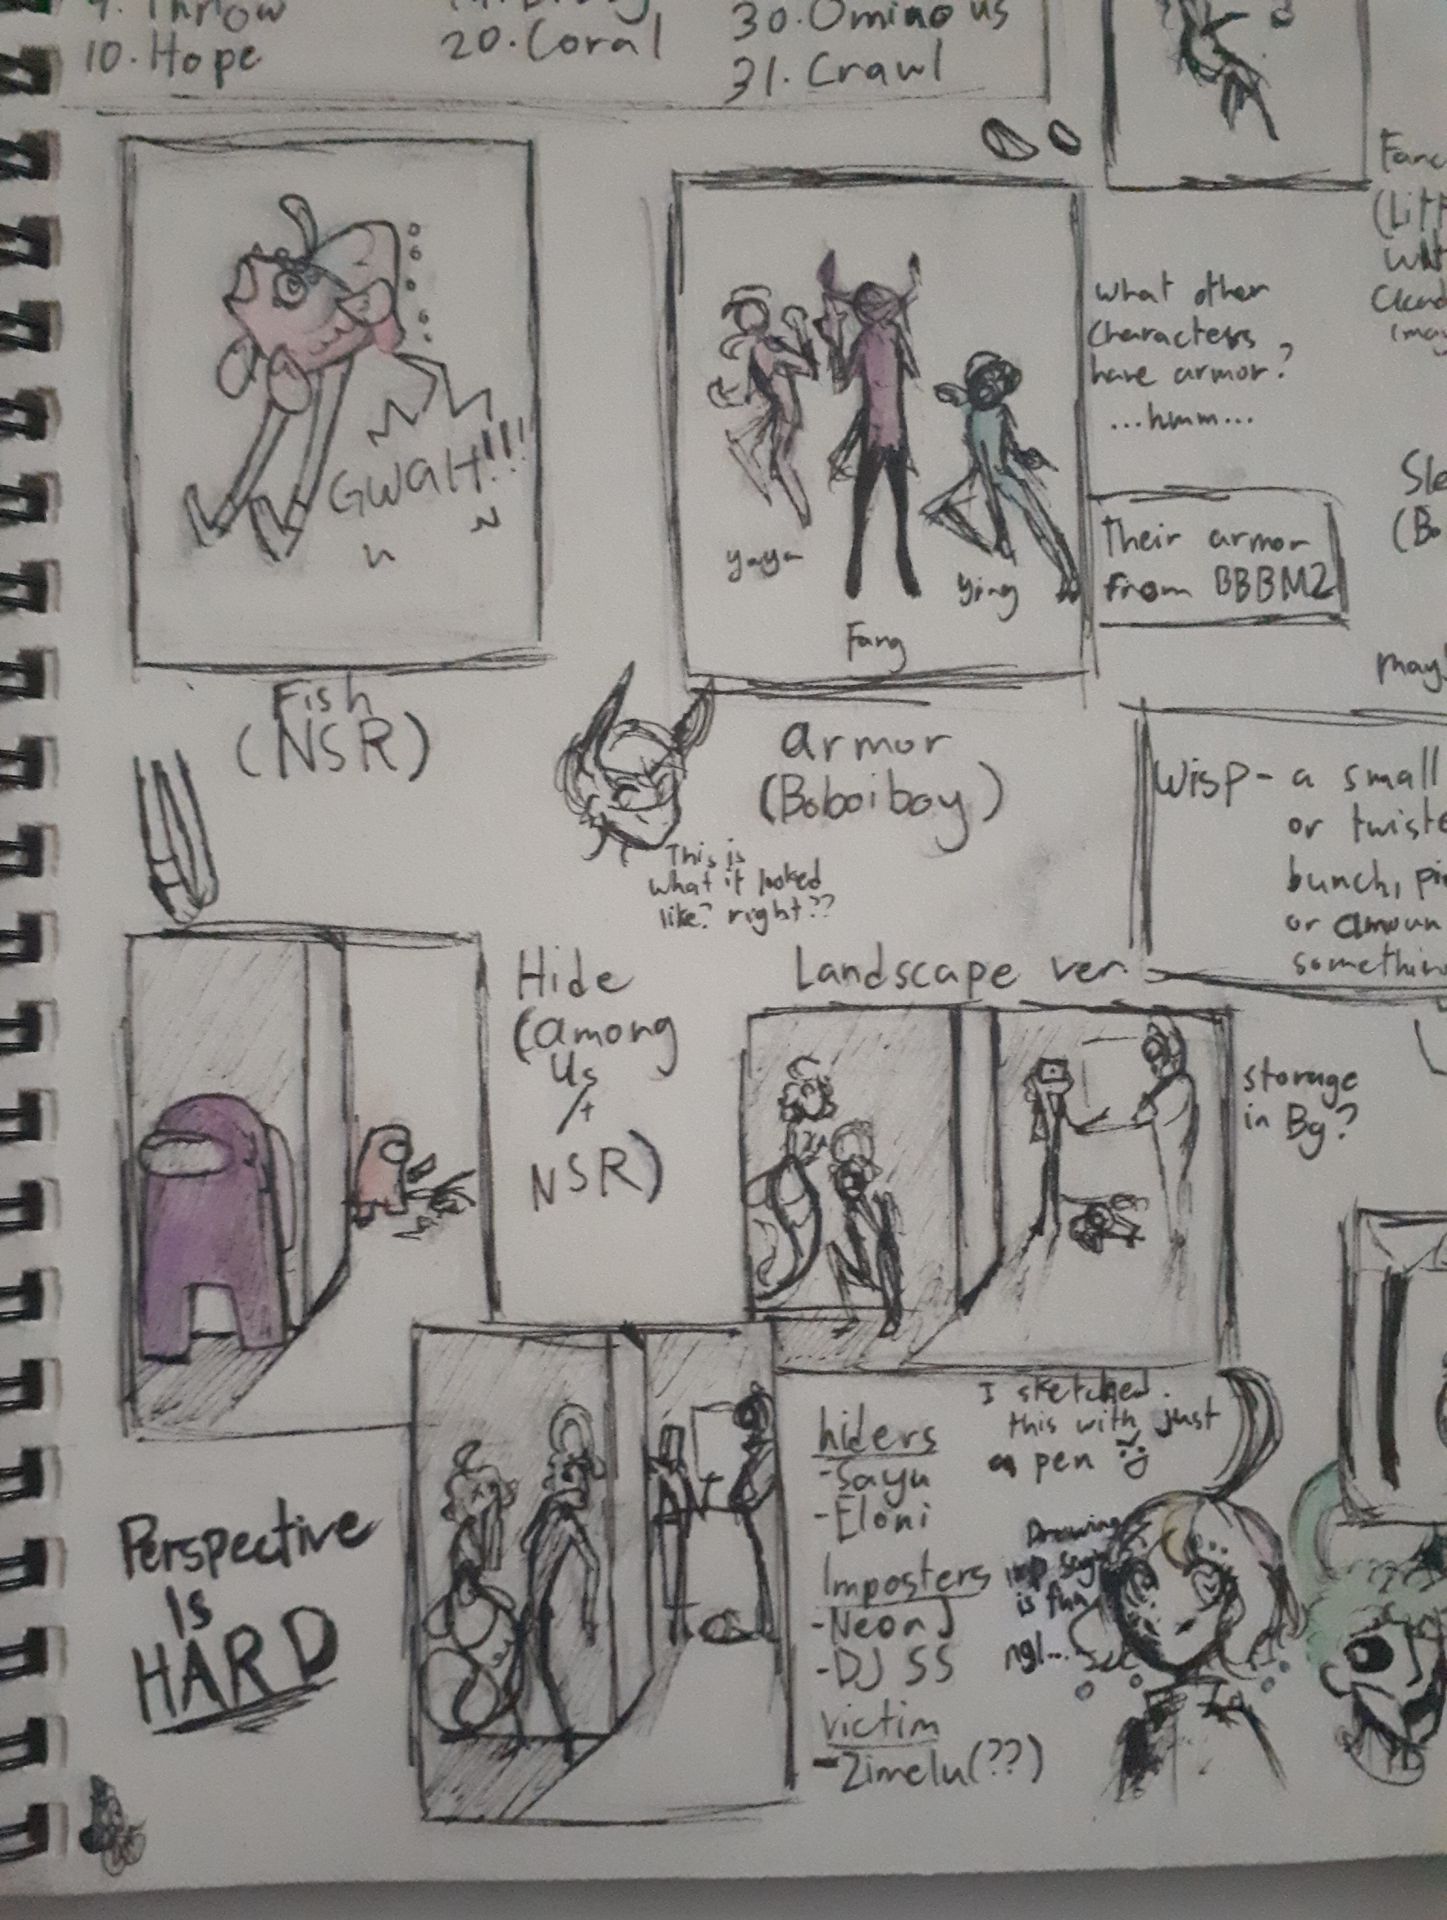 9. Throw
10. Hope
20. Coral
30. Ominous
31. Crawl
GWAH!!!
Fish
(NSR)
Yaya
Fang
Ying
what other
characters
have armor?
...hmm...
Their armor
from BBBM2
armor
(Boboiboy)
This is
what it looked
like? right??
(Litt
Wisp - a small
or twiste
bunch, pi
or amoun
somethin
Hide
(Among
Us
/+
NSR)
Landscape ver.
storage
in Bg?
Perspective
Is
HARD
hiders
-Sayu
-Eloni
Imposters
-Neon J
-DJ SS
victim
-Zimelu(??)
I sketched
this with just
a pen
Drawing
imp Sayu
is fun
ngl...